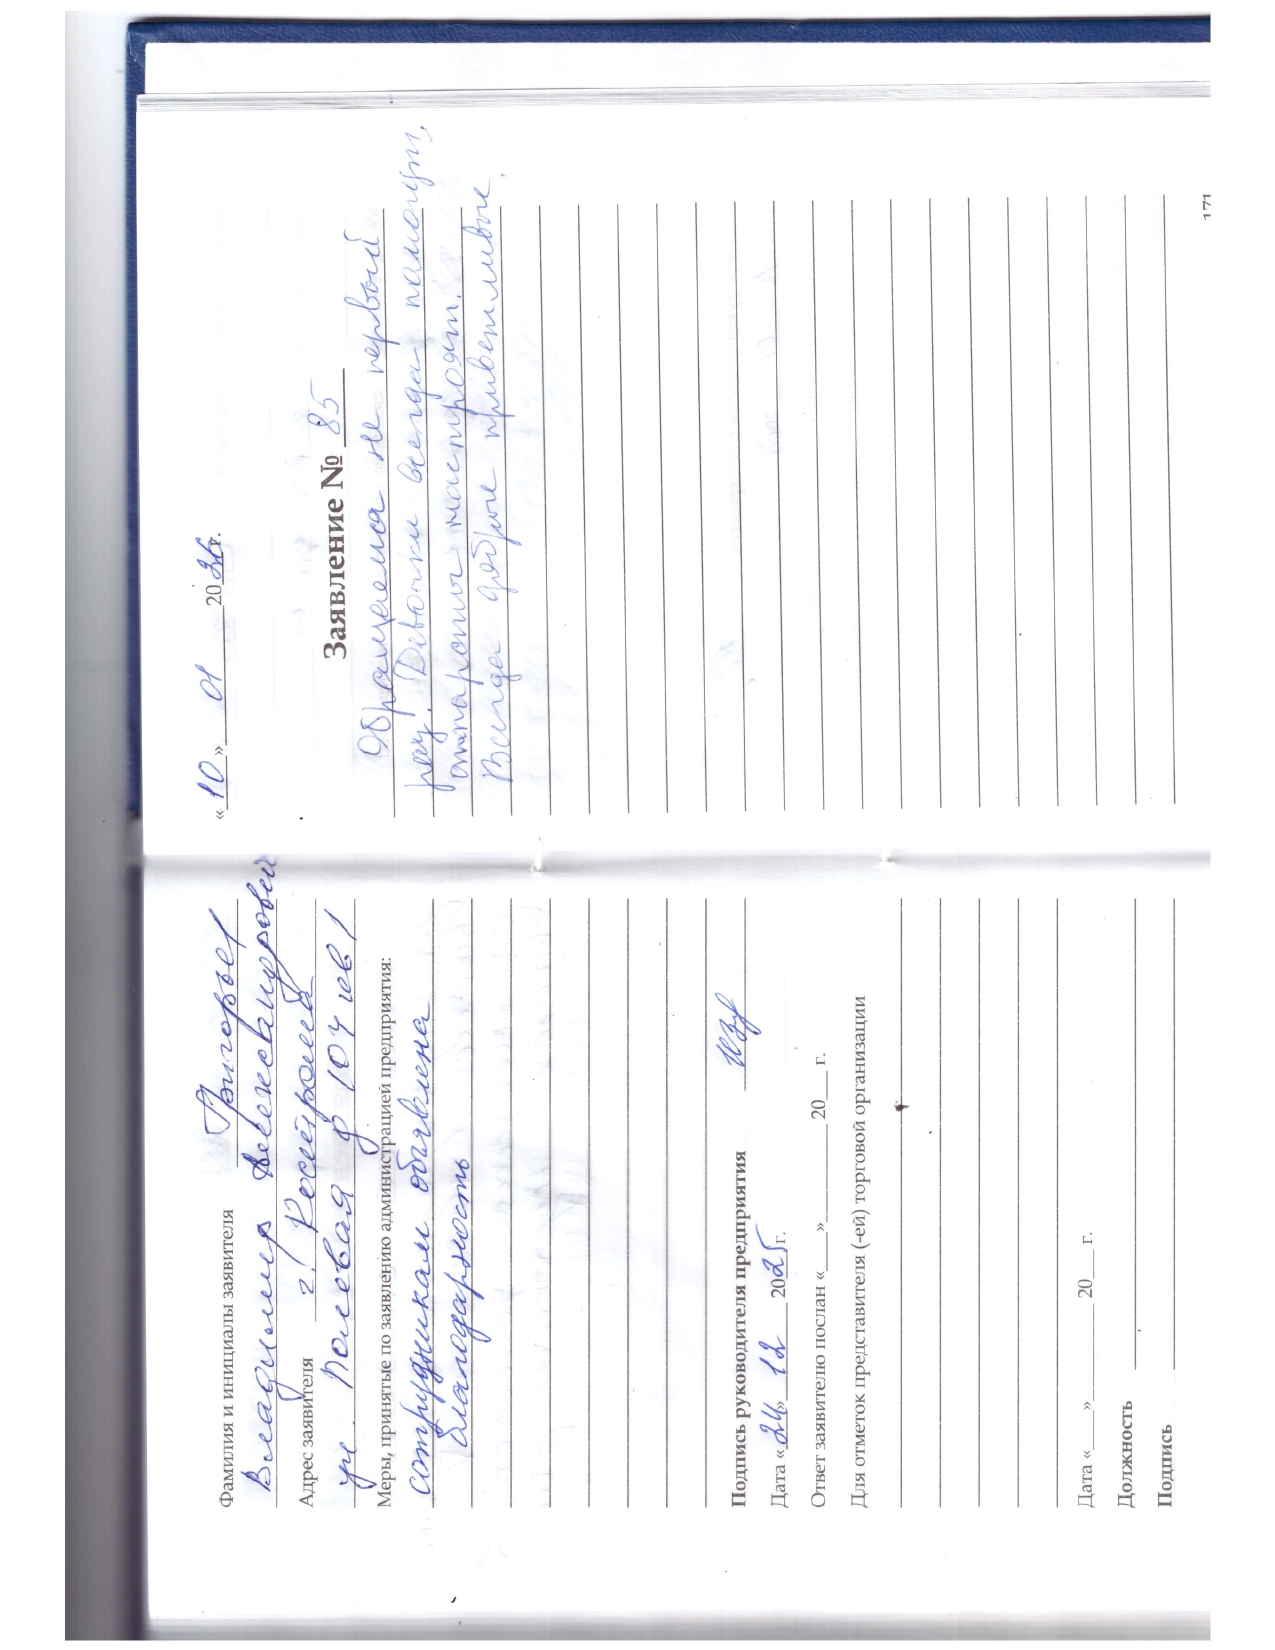 Фамилия и инициалы заявителя Григорьев
Владимир Александрович
Адрес заявителя г. Кострома
ул. Полевая д 10
Меры, принятые по заявлению администрацией предприятия:
сотрудникам объявлена
благодарность
Подпись руководителя предприятия
Дата « 24 » 12 2025 г.
Ответ заявителю послан «___» ________ 20___ г.
Для отметок представителя (-ей) торговой организации
Дата «___» ________ 20___ г.
Должность
Подпись
« 10 » 01 2026 г.
Заявление № 85
Обращаемся не первый
раз. Девочки всегда памогут,
аппараты настроят.
Всегда добрые приветливые.
171